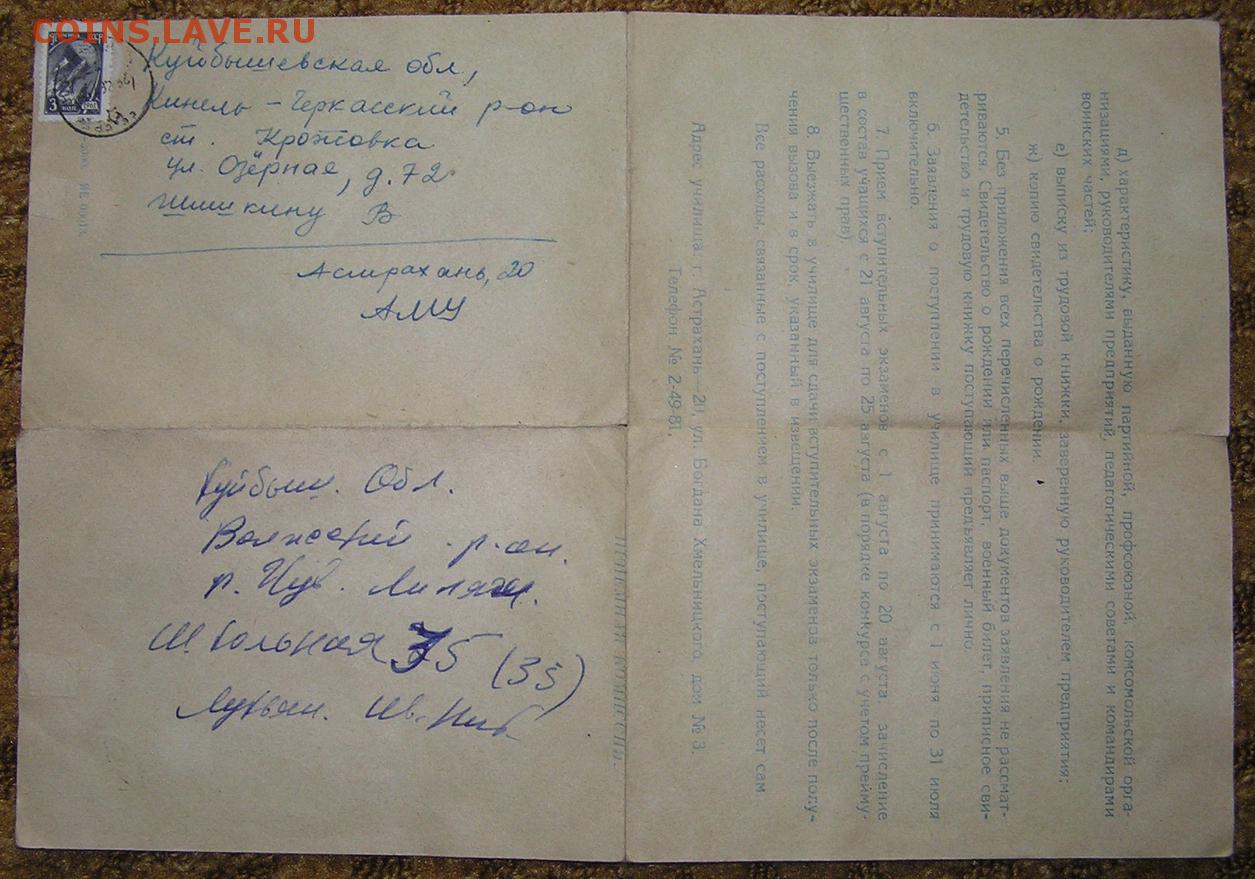 COINS.LAVE.RU
3 КОП
Куйбышевская обл,
Кинель-Черкасский р-он
ст. Кротовка
ул. Озёрная, д. 72
Шишкину В
Астрахань, 20
АМУ
ЯЕ 09013.
Куйбыш. Обл.
Волжский р-он.
Школьная 35 (33)
ПРИЕМНАЯ КОМИССИЯ.
д) характеристику, выданную партийной, профсоюзной, комсомольской орга-
низациями, руководителями предприятий, педагогическими советами и командирами
воинских частей;
е) выписку из трудовой книжки, заверенную руководителем предприятия;
ж) копию свидетельства о рождении.
5. Без приложения всех перечисленных выше документов заявления не рассмат-
риваются. Свидетельство о рождении или паспорт, военный билет, приписное сви-
детельство и трудовую книжку поступающий предъявляет лично.
6. Заявления о поступлении в училище принимаются с 1 июня по 31 июля
включительно.
7. Прием вступительных экзаменов с 1 августа по 20 августа, зачисление
в состав учащихся с 21 августа по 25 августа (в порядке конкурса с учетом преиму-
щественных прав).
8. Выезжать в училище для сдачи вступительных экзаменов только после полу-
чения вызова и в срок, указанный в извещении.
Все расходы, связанные с поступлением в училище, поступающий несет сам.
Адрес училища г. Астрахань—20, ул. Богдана Хмельницкого, дом № 3.
Телефон № 2-49-81.